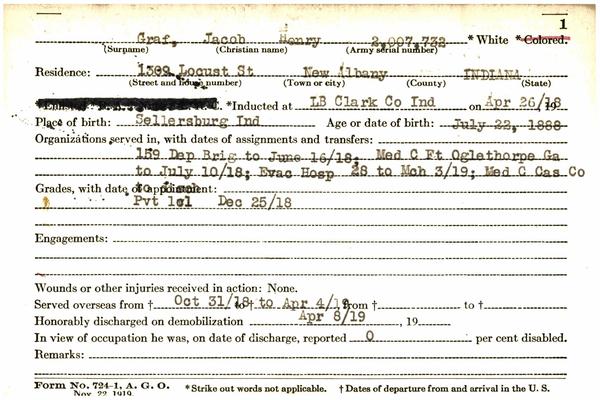 1
Graf, Jacob Henry 2,007,732 * White * Colored.
(Surname) (Christian name) (Army serial number)
Residence: 1309 Locust St New Albany INDIANA
(Street and house number) (Town or city) (County) (State)
*Inducted at LB Clark Co Ind on Apr 26/18, 19
Place of birth: Sellersburg Ind Age or date of birth: July 22, 1888
Organizations served in, with dates of assignments and transfers:
159 Dep Brig to June 16/18; Med C Ft Oglethorpe Ga
to July 10/18; Evac Hosp 28 to Mch 3/19; Med C Cas Co
to Disch
Grades, with date of appointment:
Pvt 1cl Dec 25/18
Engagements:
Wounds or other injuries received in action: None.
Served overseas from † Oct 31/18 to † to Apr 4/19 from † to †
Honorably discharged on demobilization Apr 8/19, 19
In view of occupation he was, on date of discharge, reported 0 per cent disabled.
Remarks:
Form No. 724-1, A. G. O. *Strike out words not applicable. † Dates of departure from and arrival in the U. S.
Nov. 22, 1919.